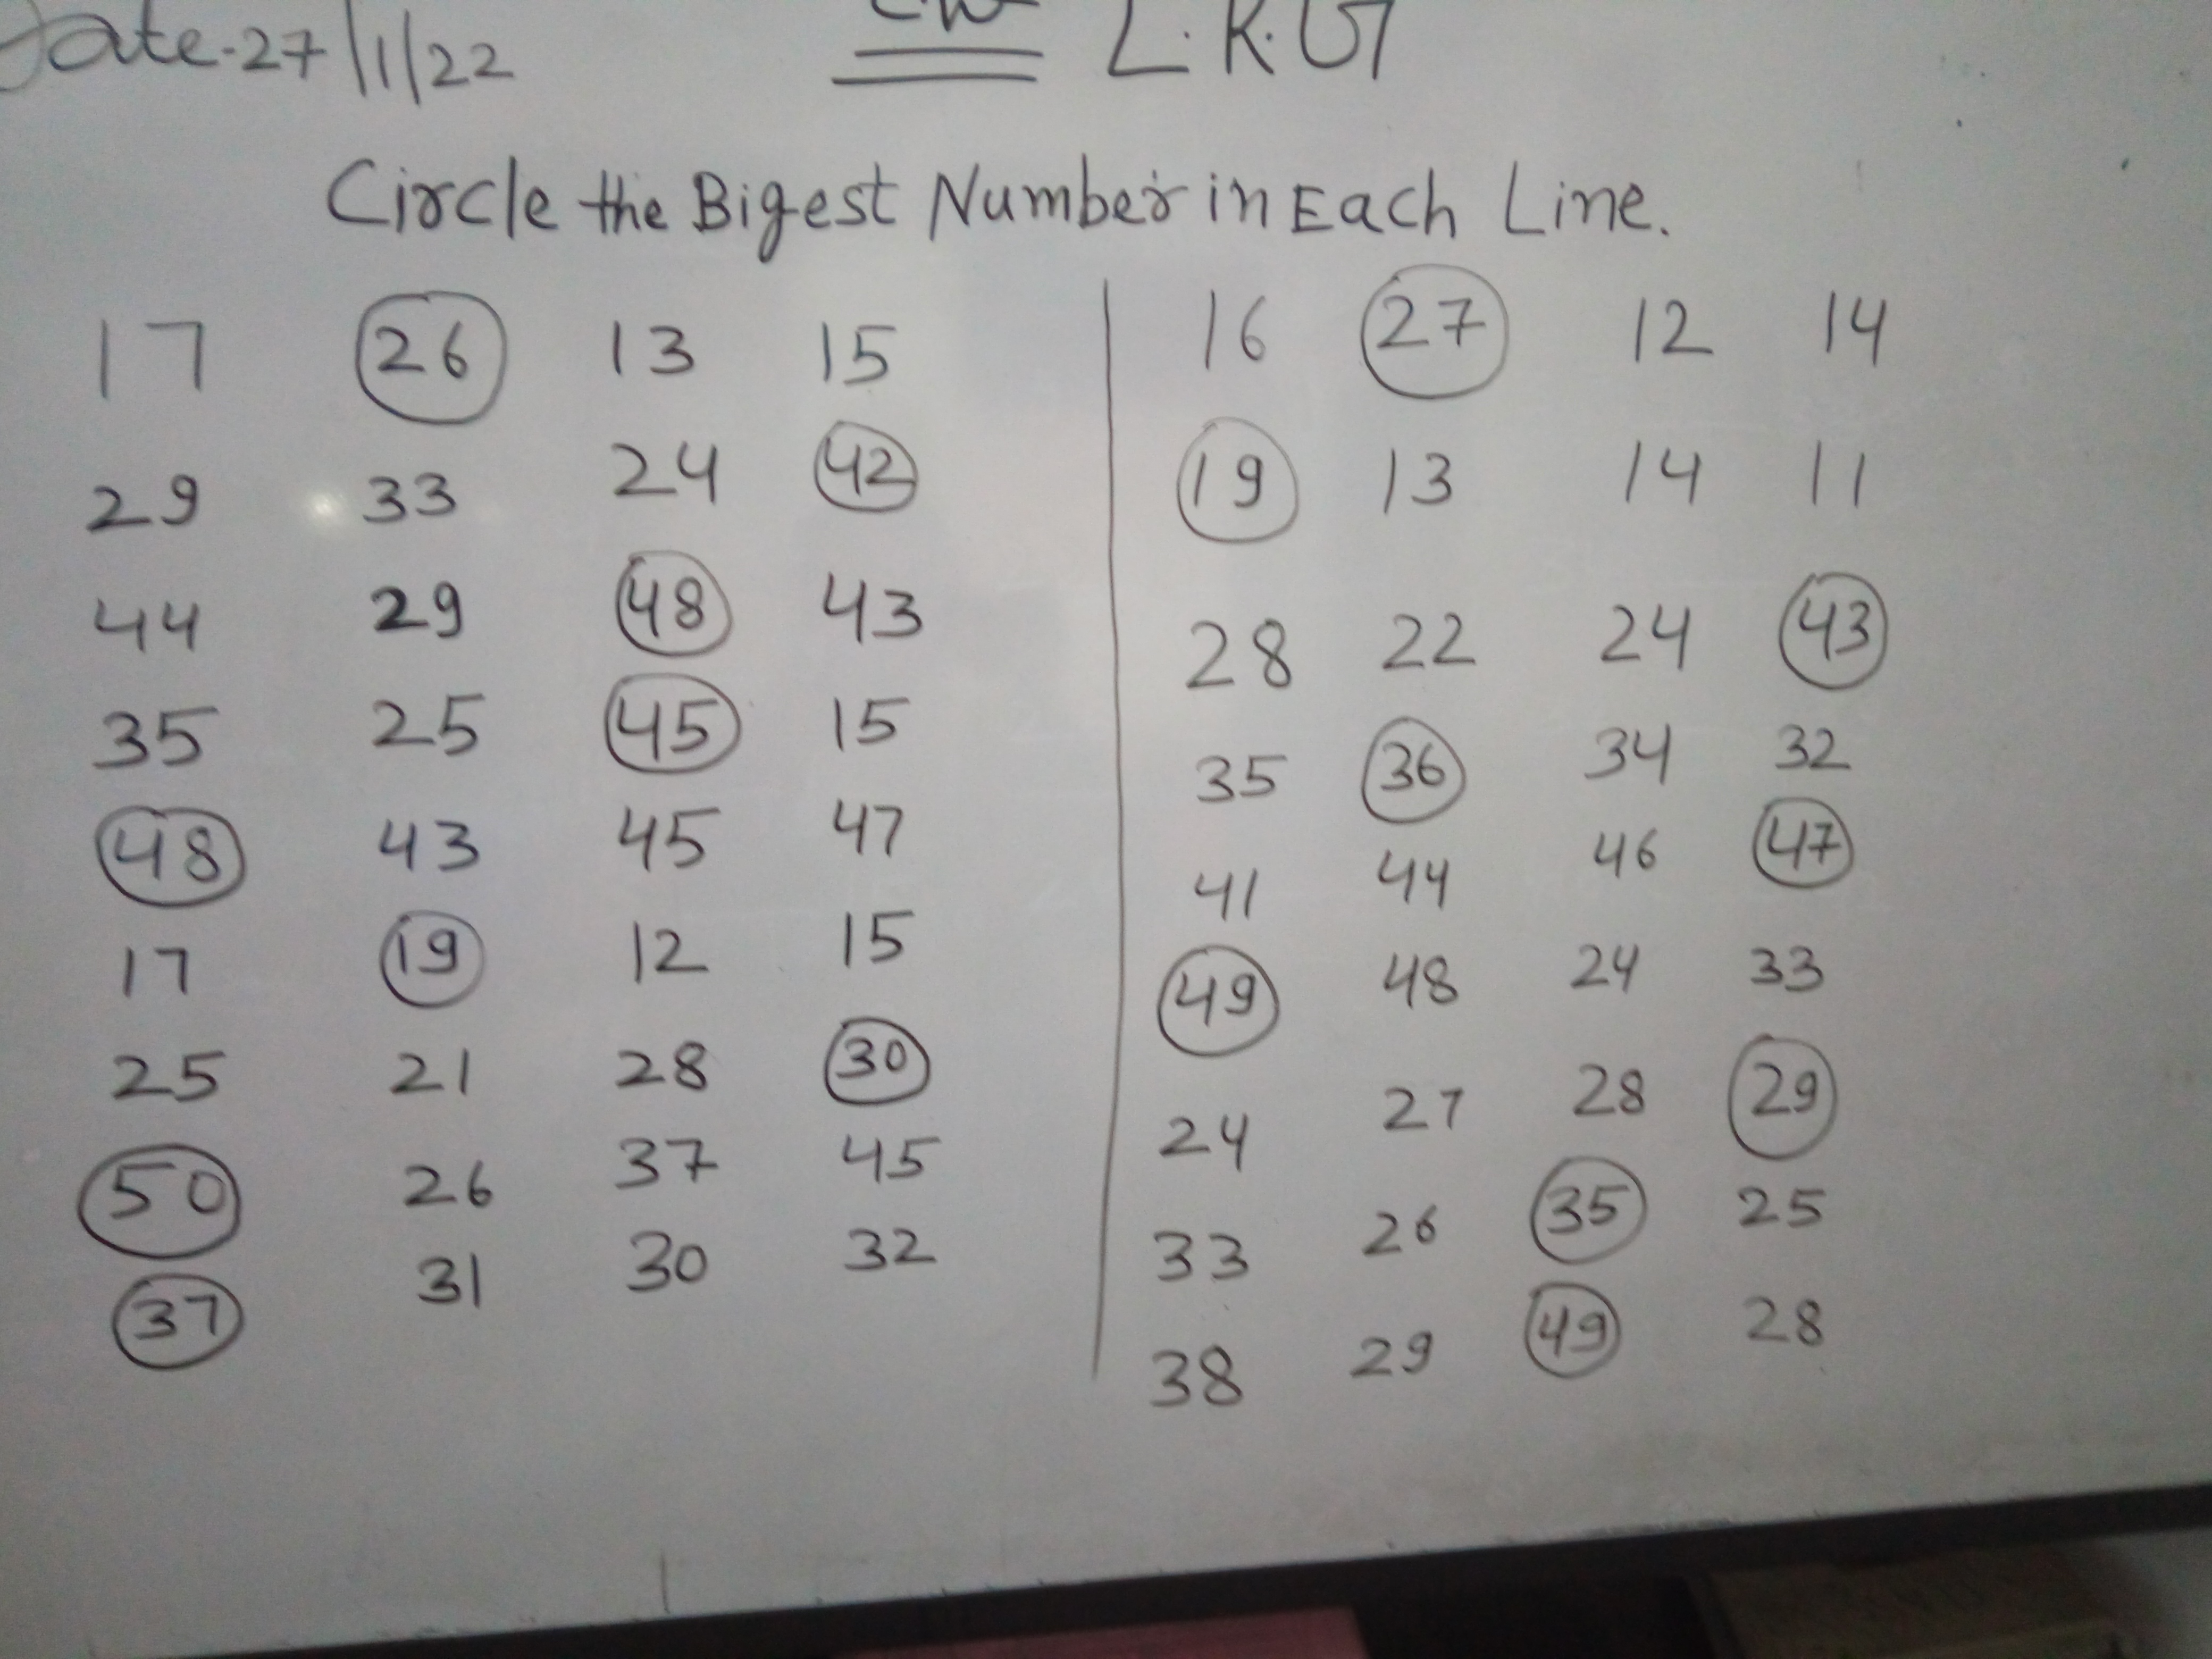 Date-27/1/22 C.W L.K.G
Circle the Bigest Number in Each Line.
17 26 13 15
29 33 24 42
44 29 48 43
35 25 45 15
48 43 45 47
17 19 12 15
25 21 28 30
50 26 37 45
37 31 30 32
16 27 12 14
19 13 14 11
28 22 24 43
35 36 34 32
41 44 46 47
49 48 24 33
24 27 28 29
33 26 35 25
38 29 49 28